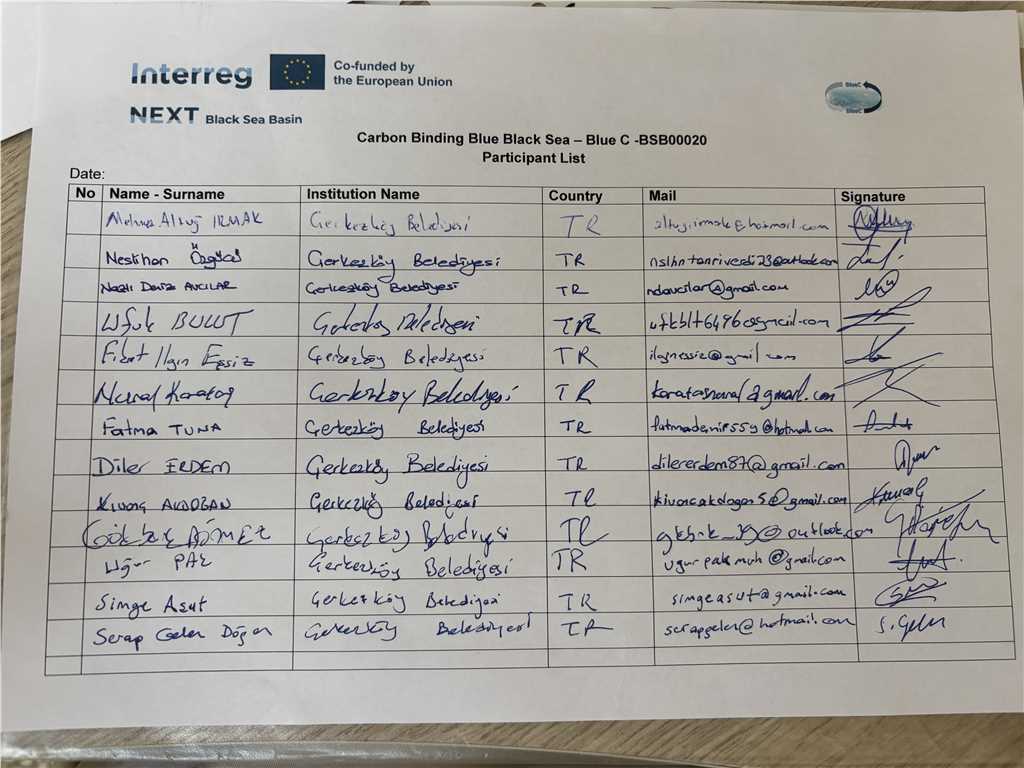 Interreg
Co-funded by
the European Union
NEXT Black Sea Basin
BlueC
BlueC
Carbon Binding Blue Black Sea – Blue C -BSB00020
Participant List
Date:
No Name - Surname Institution Name Country Mail Signature
Altuğ IRMAK Çerkezköy Belediyesi TR
Neslihan Çerkezköy Belediyesi TR
Nazlı Deniz AVCILAR Çerkezköy Belediyesi TR ndavcilar@gmail.com
Ufuk BULUT TR
Fırat Ilgın Eşsiz Çerkezköy Belediyesi TR ilgnessiz@gmail.com
Nural Karataş Çerkezköy Belediyesi TR karatasnural@gmail.com
Fatma TUNA Çerkezköy Belediyesi TR
Diler ERDEM Çerkezköy Belediyesi TR dilererdem87@gmail.com
Kıvanç AKDOĞAN Çerkezköy Belediyesi TR kivancakdogan5@gmail.com
Çerkezköy Belediyesi TR
Uğur PAK Çerkezköy Belediyesi TR ugurpakmuh@gmail.com
Simge Aşut Çerkezköy Belediyesi TR simgeasut@gmail.com
Serap Gelen Doğan Çerkezköy Belediyesi TR serapgelen@hotmail.com S. Gelen